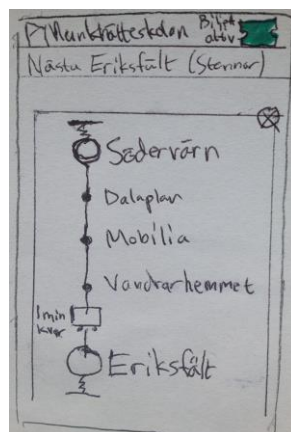 Munkhätteskolan
Biljett aktiv
Nästa Eriksfält (Stannar)
Södervärn
Dalaplan
Mobilia
Vandrarhemmet
1 min kvar
Eriksfält